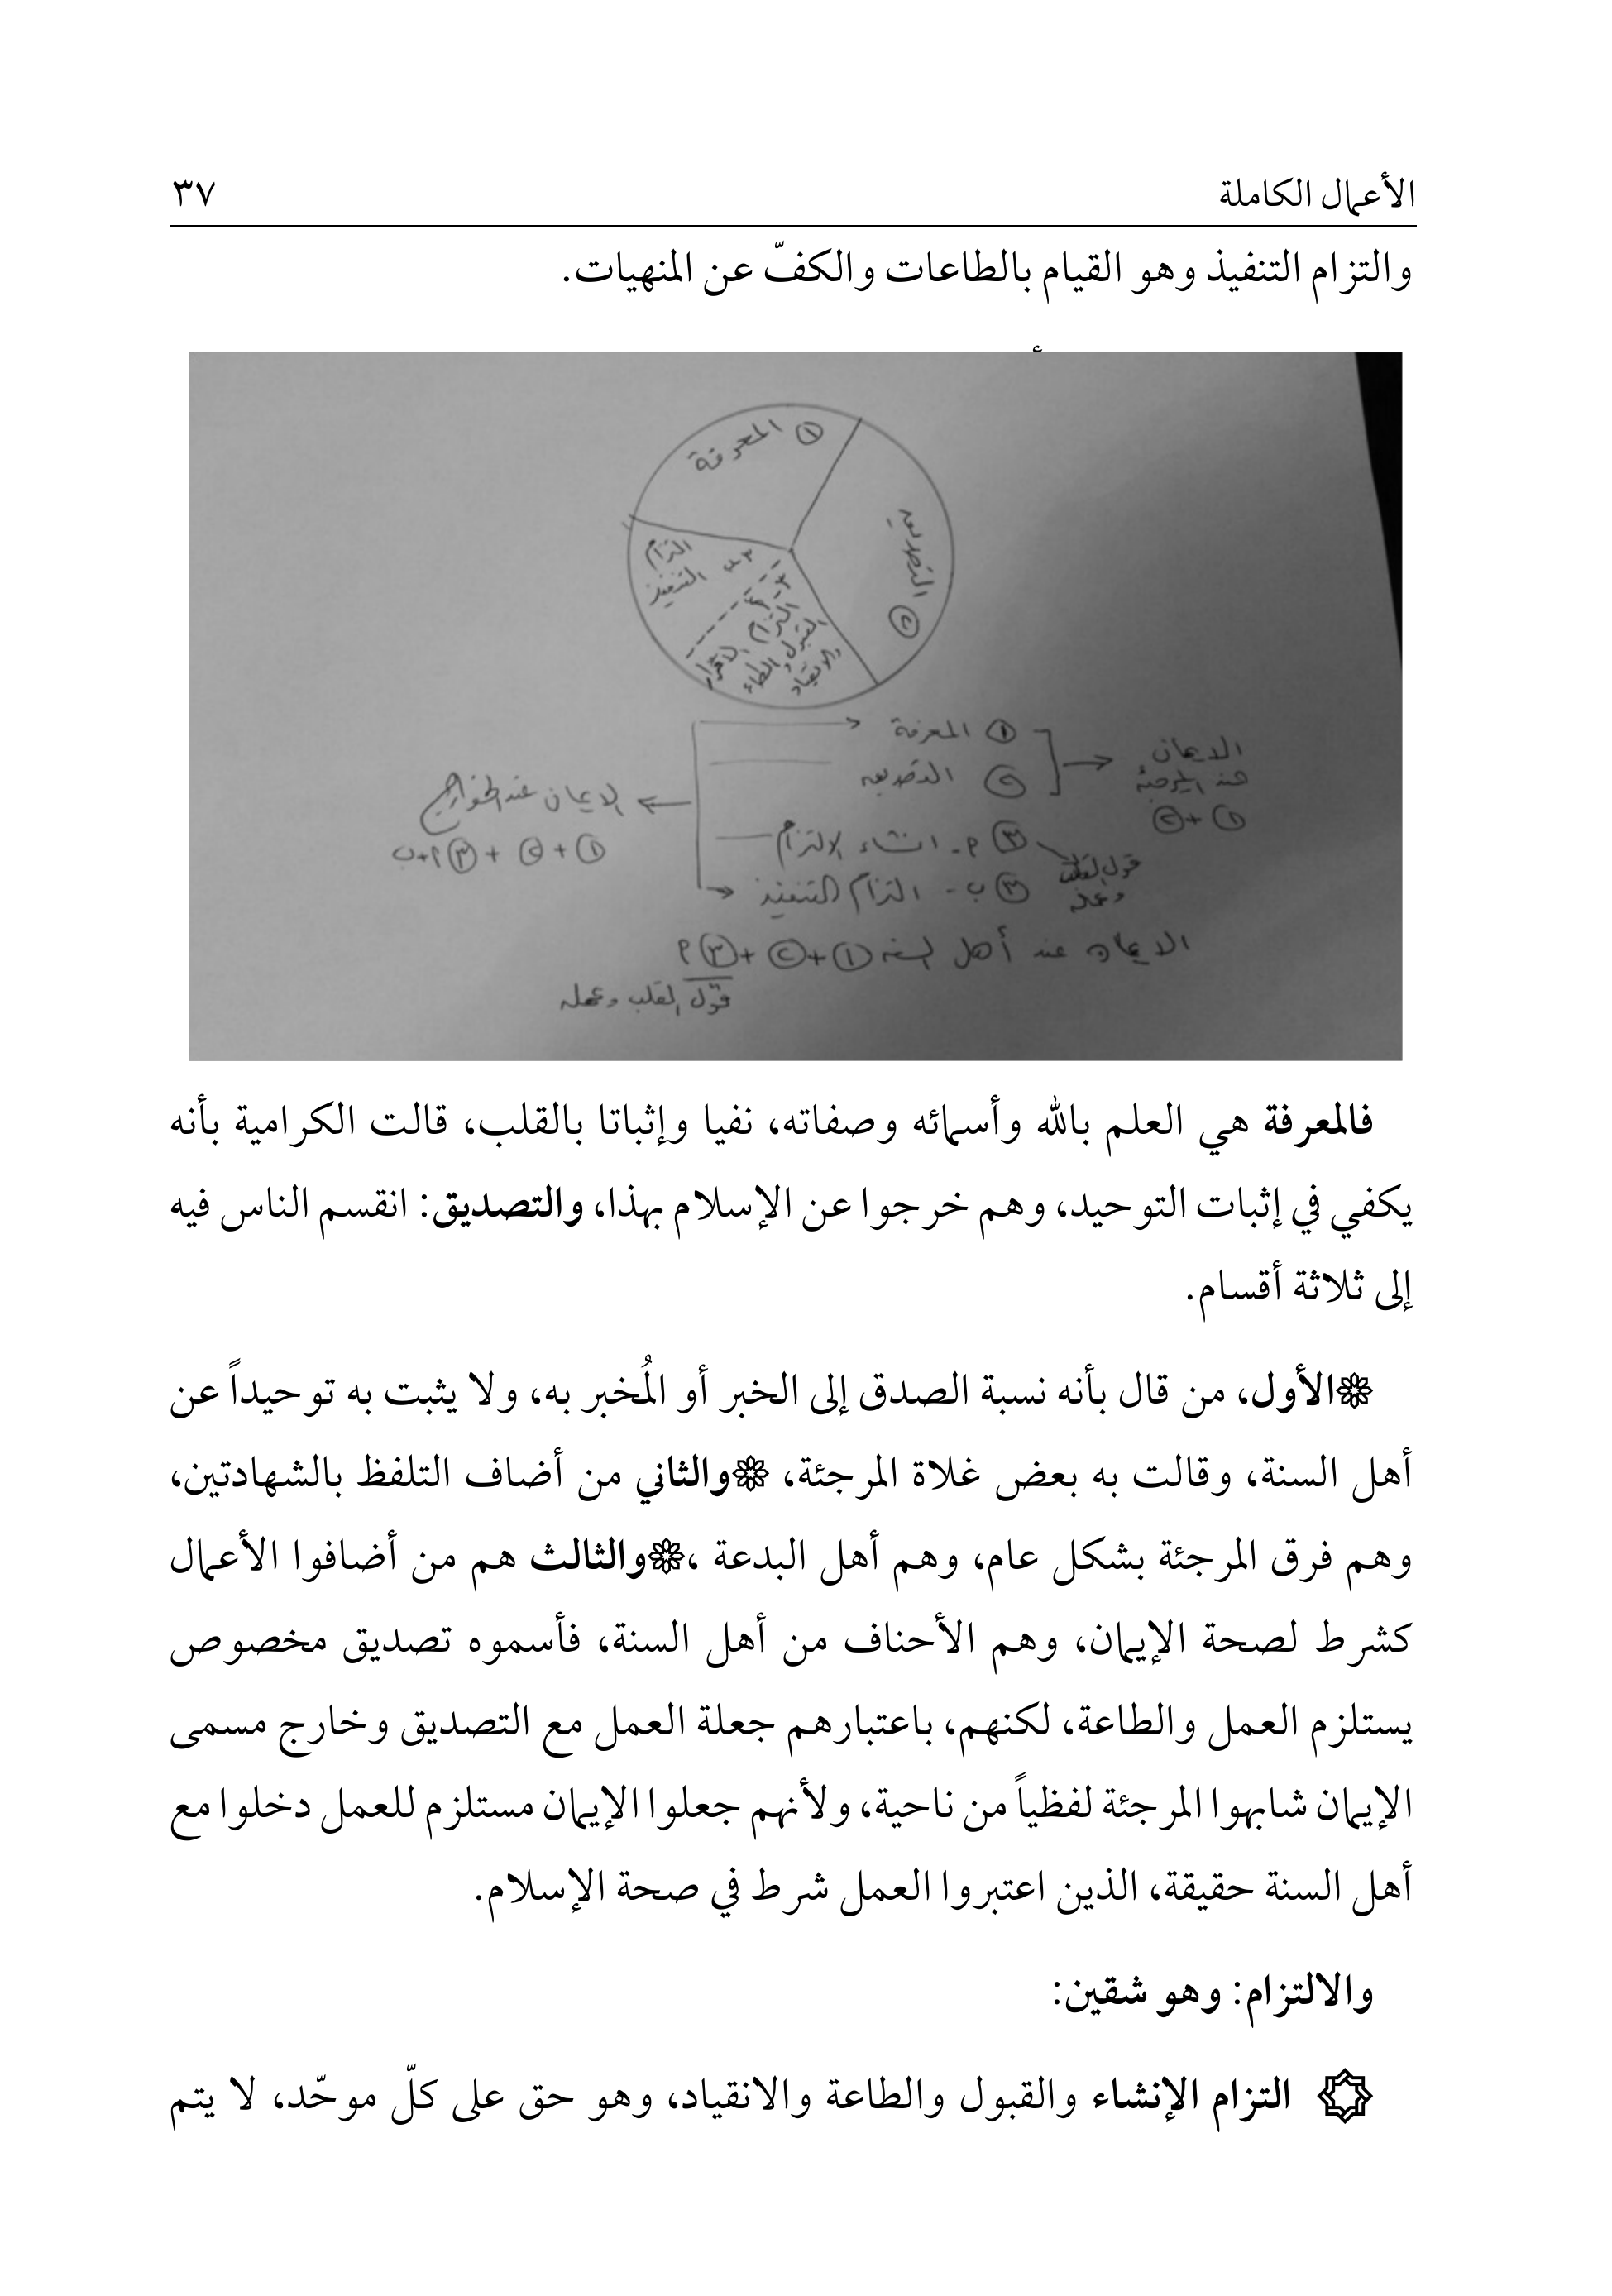 الأعمال الكاملة ٣٧
والتزام التنفيذ وهو القيام بالطاعات والكفّ عن المنهيات.
① المعرفة
التصديق
②
٣-ب
التزام
التنفيذ
التزام
القبول
والانقياد
① المعرفة
② التصديق
③ أ- انشاء الالتزام
③ ب- التزام التنفيذ
الايمان
عند المرجئة
①+②
قول القلب
وعمله
الايمان عند الخوارج
① + ② + ③أ+ب
الايمان عند أهل السنة ①+②+③أ
قول القلب وعمله
فالمعرفة هي العلم بالله وأسمائه وصفاته، نفيا وإثباتا بالقلب، قالت الكرامية بأنه
يكفي في إثبات التوحيد، وهم خرجوا عن الإسلام بهذا، والتصديق: انقسم الناس فيه
إلى ثلاثة أقسام.
الأول، من قال بأنه نسبة الصدق إلى الخبر أو المُخبر به، ولا يثبت به توحيداً عن
أهل السنة، وقالت به بعض غلاة المرجئة، والثاني من أضاف التلفظ بالشهادتين،
وهم فرق المرجئة بشكل عام، وهم أهل البدعة ،والثالث هم من أضافوا الأعمال
كشرط لصحة الإيمان، وهم الأحناف من أهل السنة، فأسموه تصديق مخصوص
يستلزم العمل والطاعة، لكنهم، باعتبارهم جعلة العمل مع التصديق وخارج مسمى
الإيمان شابهوا المرجئة لفظياً من ناحية، ولأنهم جعلوا الإيمان مستلزم للعمل دخلوا مع
أهل السنة حقيقة، الذين اعتبروا العمل شرط في صحة الإسلام.
والالتزام: وهو شقين:
التزام الإنشاء والقبول والطاعة والانقياد، وهو حق على كلّ موحّد، لا يتم